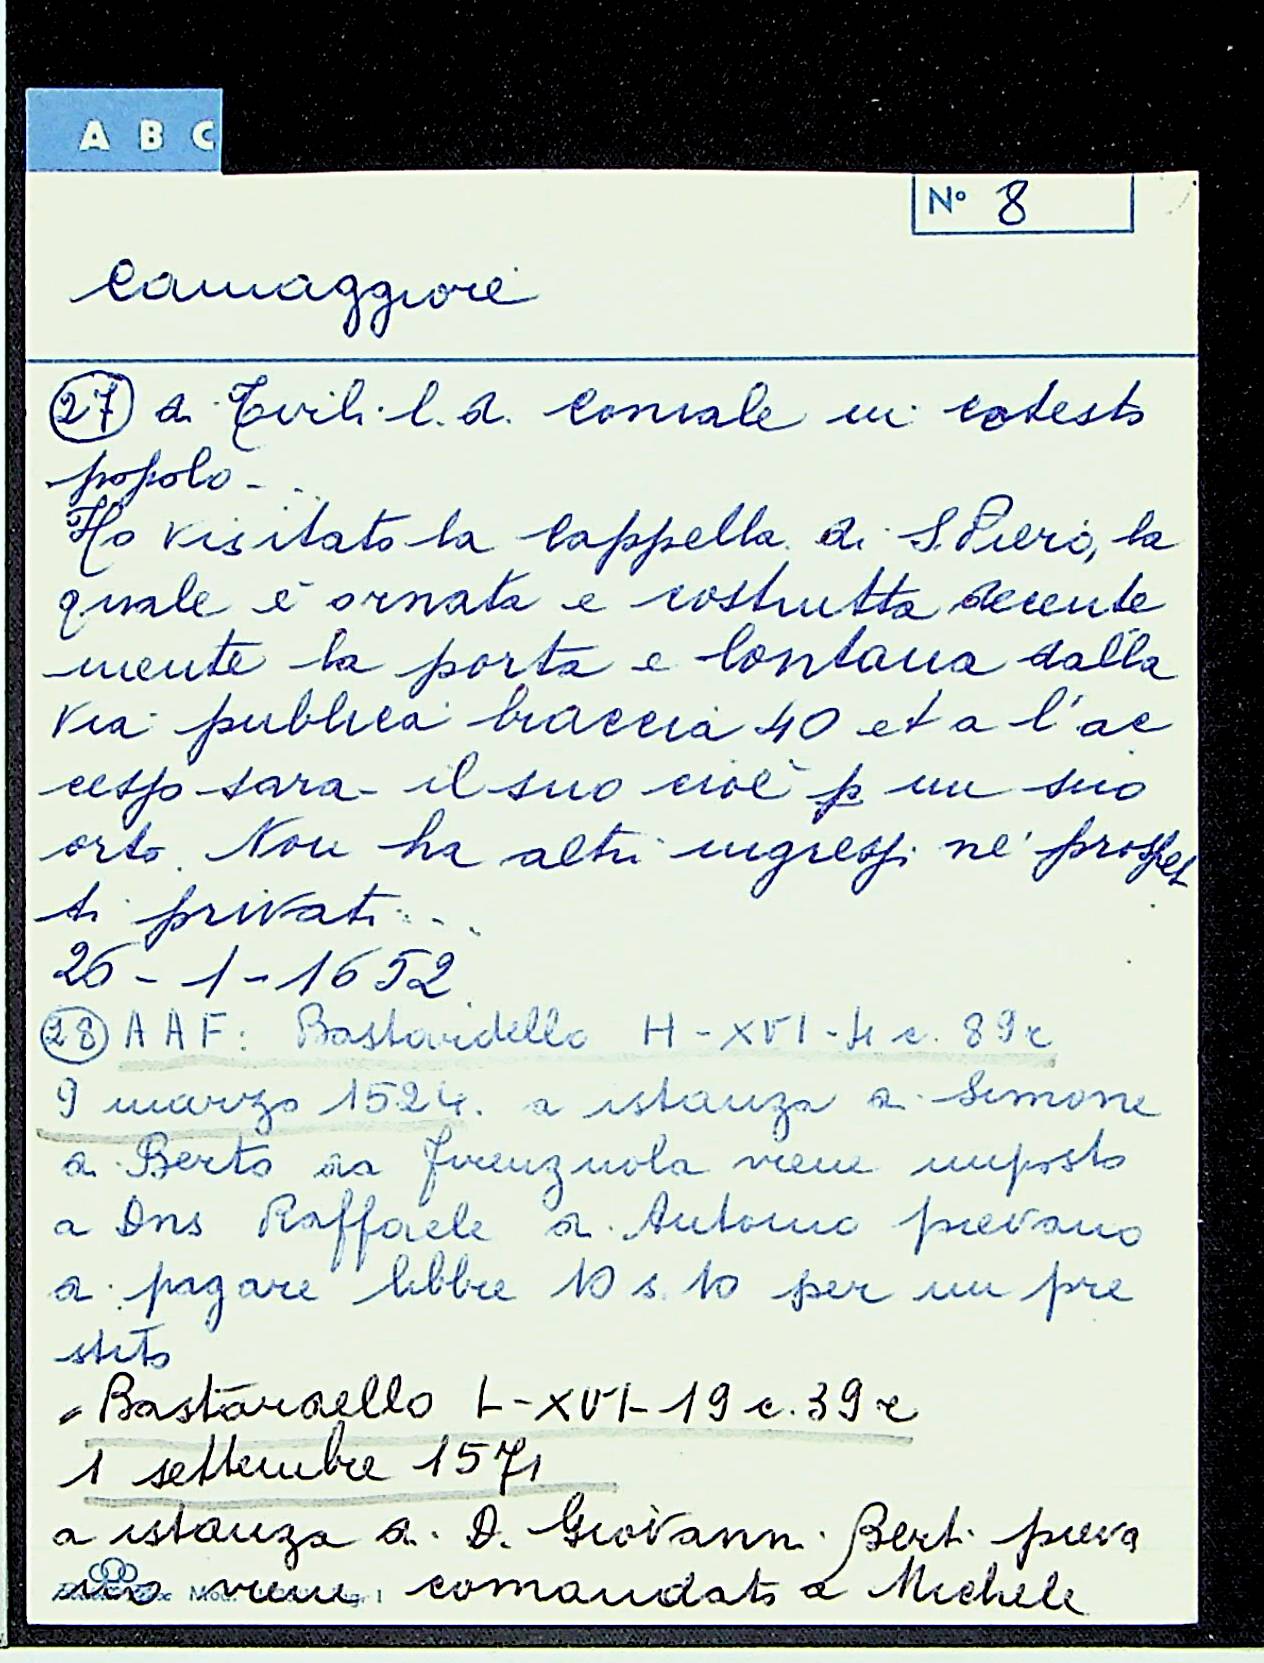 A B C
N° 8
Camaggiore
27 di l. d. Casale in cotesto
popolo...
Ho visitato la cappella di S. Piero, la
quale è ornata e costrutta decente
mente la porta e lontana dalla
via publica braccia 40 et a l'ac
cesso sara il suo cioè p un suo
orto. Non ha altri ingressi ne' prospet
ti privati...
26-1-1652
28 AAF: Bastardello H-XVI-4 c. 89r
9 marzo 1524. a istanza di Simone
di Berto da Firenzuola viene imposto
a Dns Raffaele di Antonio pievano
di pagare libbre 10 s. 10 per un pre
stito
Bastardello L-XVI-19 c. 39r
1 settembre 1571
a istanza di D. Giovanni Berti pieva
no viene comandato a Michele